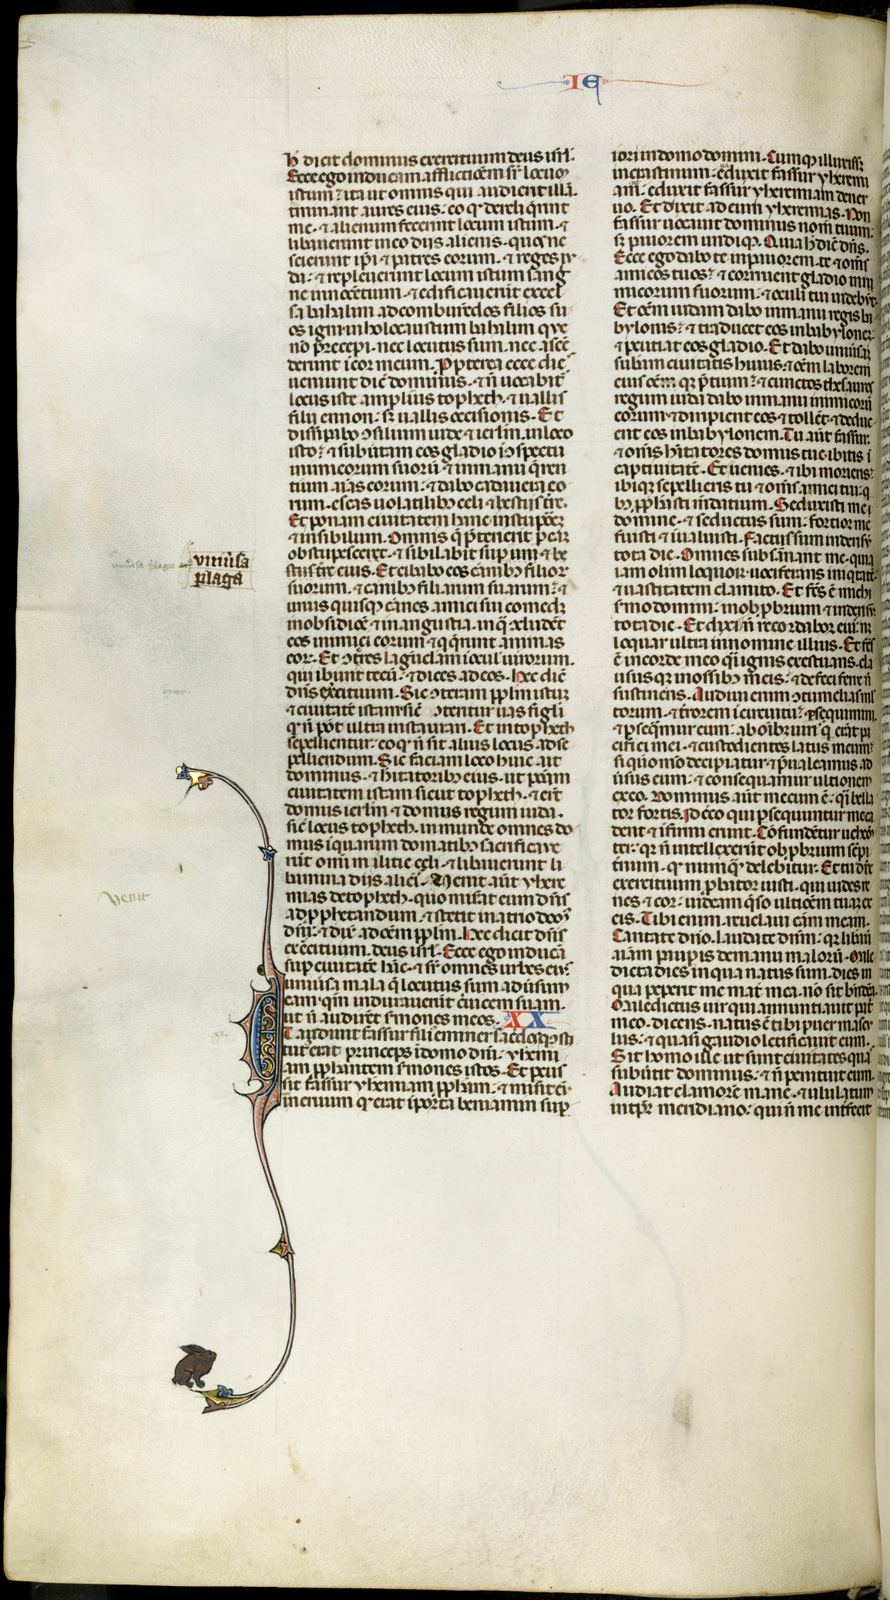 IE
h dicit dominus exercituum deus isrl.
Ecce ego inducam afflictiōem sr̄ locum
istum: ita ut omnis qui audierit illā
tinniant aures eius. eo qd̄ dereliq̄rint
me. et alienum fecerint locum istum. et
libauerint in eo diis alienis. quos ne
scierunt ip̄i et patres eorum. et reges iu
da: et repleuerunt locum istum sang
ne innocētum. et edificauerunt excel
sa bahalim ad comburēdos filios su
os igni in holocaustum bahalim que
nō precepi. nec locutus sum. nec ascē
derunt ī cor meum. Ppterea ecce dies
ueniunt dic̄ dominus. et n̄ uocabit̄
locus iste amplius topheth. et uallis
filii ennon. sꝫ uallis occisionis. Et
dissipabo ɔsilium iude et ierlm̄. in loco
isto: et subūtam eos gladio ī ɔspectu
inimicorum suorū et in manu q̄ren
tium aīas eorum: et dabo cadauera eo
rum. escas uolatilibꝫ celi et bestiis tr̄e.
Et ponam ciuitatem hanc in stuporē
et in sibilum. Omnis q̄ p̄terierit per eā
obstupescet. et sibilabit sup uni
uniūsa
plaga
Et cibabo eos carnibꝫ filior
suorum. et carnibꝫ filiarum suarum: et
unusquisqꝫ carnes amici sui comedꝫ
in obsidiōe et in angustia. in q̄ ɔcludēt
eos inimici eorum et q̄ q̄runt animas
eoꝝ. Et ɔteres lagūclam ī ocul uirorum.
qui ibunt tecū: et dices ad eos. Hec dic̄
dn̄s exercituum. Sic ɔteram pplm̄ istum
et ciuitatē istam sic̄ ɔteritur uas figli
qd̄ n̄ pōt ultra instaurari. Et in topheth
sepelientur: eo qd̄ n̄ sit alius locus ad se
peliendum. Sic faciam loco huic ait
dominus. et hītatoribꝫ eius. ut ponam
ciuitatem istam sicut topheth. et erūt
domus ierlm̄ et domus regum iuda.
sic̄ locus topheth. inmunde omnes do
mus ī quarum domatibꝫ sacrificaue
rūt om̄i militie celi. et libauerunt li
bamina diis alien̄. Uenit aūt yhere
mias de topheth. quo miserat eum dn̄s
ad pphetandum. et stetit in atrio dom̄
dn̄i: et dix̄ ad oēm pplm̄. Hec dicit dn̄s
exercituum. deus isrl. Ecce ego inducā
sup ciuitatē hāc. et sr̄ omnes urbes ei
uniūsa mala q̄ locutus sum aduersum
eam. qm̄ indurauerūt ceruicem suam.
ut n̄ audirēt s̄mones meos. XX
Et audiuit fassur filī emmer sacerdos q̄ sti
tut̄ erat princeps ī domo dn̄i: yheremi
am pphetantem s̄mones istos. Et pcus
sit fassur yheremiam pphm̄: et misit eū
in neruum qd̄ erat ī porta beniamin supi
iori in domo domini. Cumqꝫ illuxisset
in crastinum. eduxit fassur yheremi
no. Et dixit ad eum yheremias. Non
fassur uocauit dominus nom̄ tuum:
sꝫ pauorem undiqꝫ. Quia h̄ dic̄ dn̄s.
Ecce ego dabo te in pauorem. te et om̄s
amicos tuos: et corruent gladio ini
micorum suorum. et oculi tui uidebūt.
Et oēm iudam dabo in manu regis ba
bylonis: et traducet eos in babylonē:
et pcutiet eos gladio. Et dabo uniūsā
subām ciuitatis huius. et oēm laborem
eius oēm. qꝫ p̄tium: et cunctos thesauros
regum iuda dabo in manu inimicorū
eorum. et diripient eos et tollēt. et deduc
ent eos in babylonem. Tu aūt fassur.
et om̄s hītatores domus tue ibitis ī
captiuitatē. Et uenies. et ibi morieris:
ibiqꝫ sepelieris tu et om̄s amici tui: q
bꝫ pphasti mdatium. Seduxisti me
domine. et seductus sum: fortior me
fuisti et īualuisti. Factus sum in derisū
tota die. Omnes subsānant me. quia
iam olim loquor. uociferans iniqtatē
et uastitatem clamito. Et fc̄s ē michi
s̄mo domini: in obpbrium et in derisū
tota die. Et dixi n̄ recordabor eiꝰ. nꝫ
loquar ultra in nomine illius. Et fc̄s
ē in corde meo q̄i ignis exestuans. cla
ususqꝫ in ossibꝫ meis: et defeci ferre n̄
sustinens. Audiui enim ɔtumelias ml
torum. et trorem ī circuitu: psequimini.
et pseq̄mur eum: ab oībꝫ uiris q̄ erāt pa
cifici mei. et custodientes latus meum:
si quomō decipiatur. et p̄ualeamus ad
ūsus eum: et consequamur ultionem
ex eo. Dominus aūt mecum ē. q̄i bella
tor fortis. Idceo qui psequuntur me ca
dent et īfirmi erunt. Cōfundētur uehem̄
ter: qꝫ n̄ intellexerūt obpbrium sepi
ternum. qd̄ numqꝫ delebitur. Et tu dn̄e
exercituum pbator iusti. qui uides re
nes et cor: uideam q̄so ultiōem tuā ex
eis. Tibi enim reuelaui cām meam.
Cantate dn̄o. laudate dn̄m: qꝫ libūit
aīam paupis de manu malorū. Male
dicta dies in qua natus sum. dies in
qua peperit me mat̄ mea. nō sit bn̄dcā.
Maledictus uir qui annuntiauit patī
meo. dicens. natus ē tibi puer mascu
lus: et quasi gaudio letificauit eum.
Sit homo ille ut sunt ciuitates quas
subūtit dominus: et n̄ penituit eum.
Audiat clamorē mane. et ululatum
in tpr̄ meridiano: qui n̄ me intfecit
Uenit